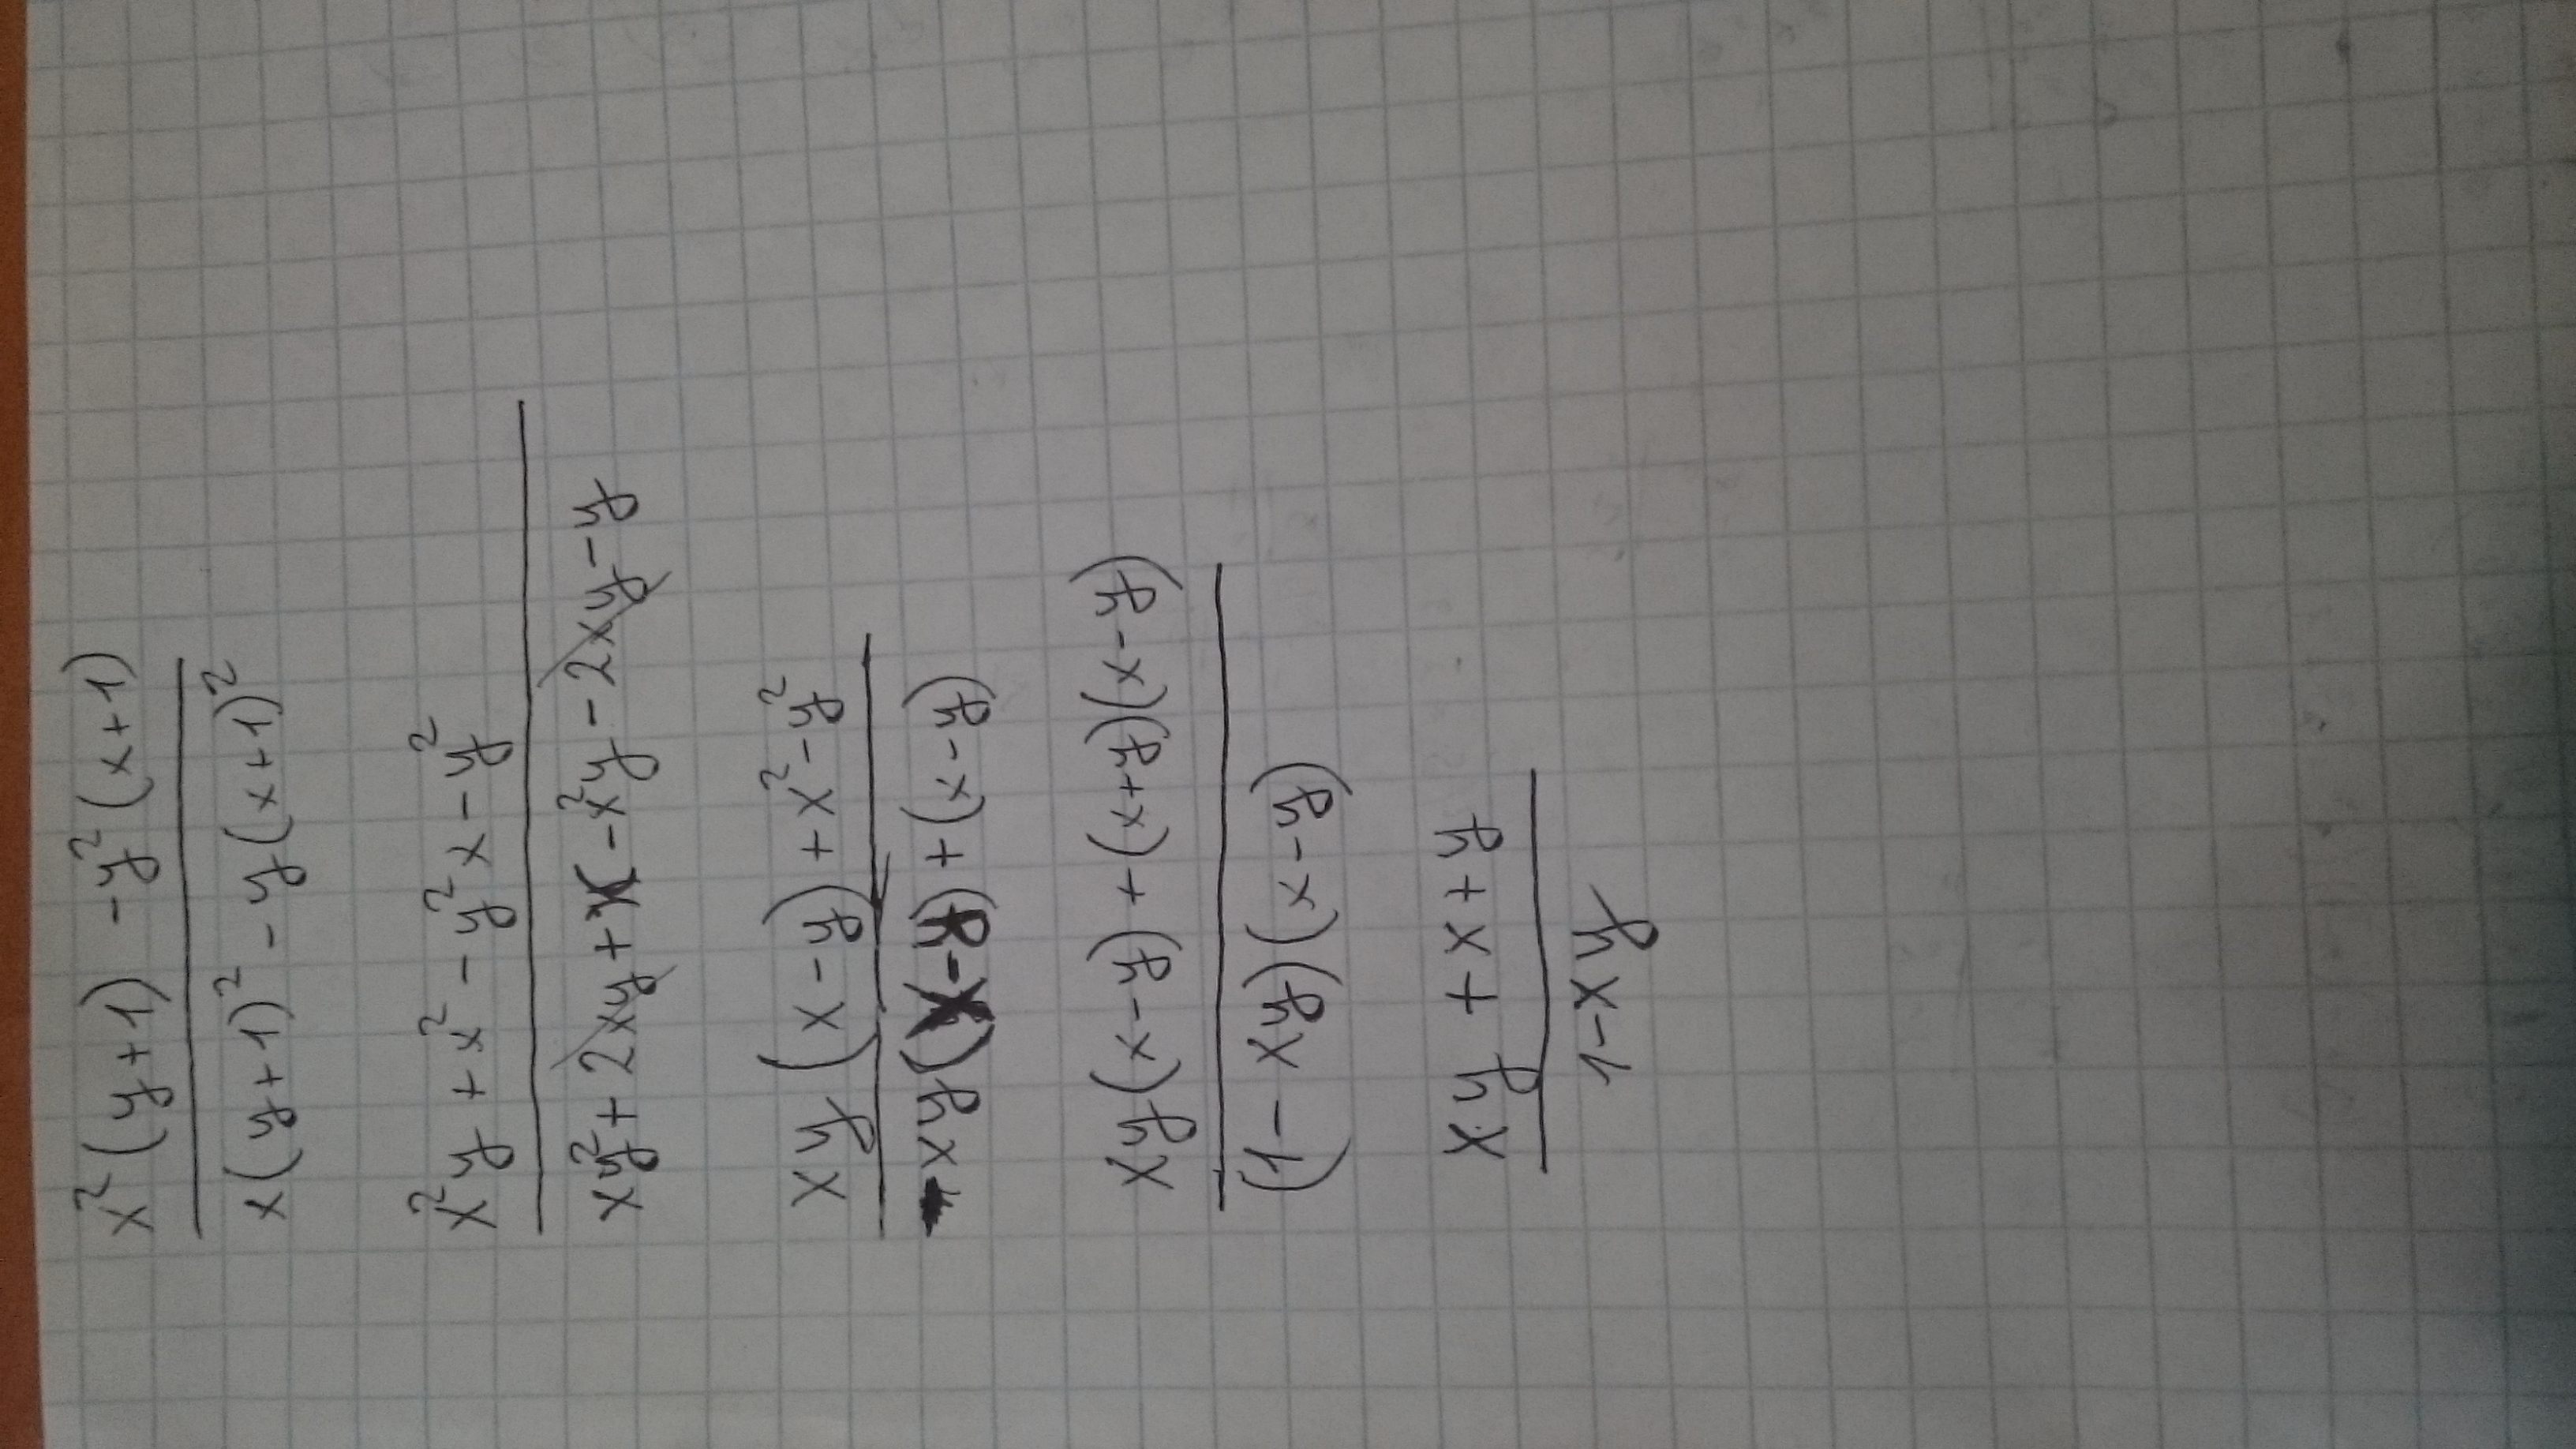 x²(y+1) - y²(x+1)
x(y+1)² - y(x+1)²
x²y + x² - y²x - y²
xy² + 2xy + x - x²y - 2xy - y
xy(x-y) + x² - y²
-xy(x-y) + (x-y)
xy(x-y) + (x+y)(x-y)
(1-xy)(x-y)
xy + x + y
1-xy